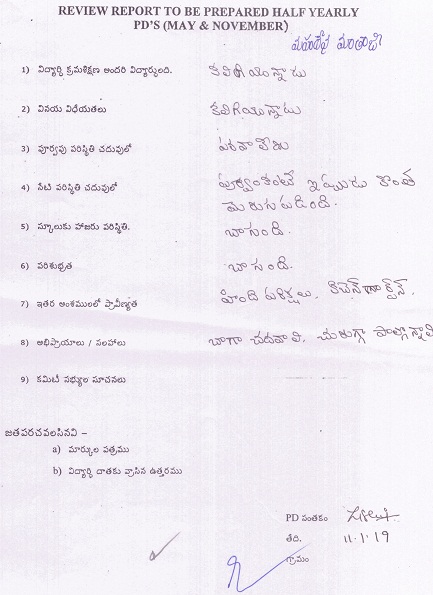 REVIEW REPORT TO BE PREPARED HALF YEARLY
PD'S (MAY & NOVEMBER)
1) విద్యార్థి క్రమశిక్షణ అందరి విద్యార్థులది. కలిగియున్నాడు
2) వినయ విధేయతలు కలిగియున్నాడు
3) పూర్వపు పరిస్థితి చదువులో పరవాలేదు
4) నేటి పరిస్థితి చదువులో పూర్వంకంటే ఇప్పుడు కొంత
మెరుగుపడింది.
5) స్కూలుకు హాజరు పరిస్థితి. బాగుంది.
6) పరిశుభ్రత బాగుంది.
7) ఇతర అంశములలో ప్రావీణ్యత హింది పరీక్షలు.
8) అభిప్రాయాలు / సలహాలు బాగా చదవాలి. చురుగ్గా పాల్గొన్నాలి
9) కమిటీ సభ్యుల సూచనలు
జతపరచవలసినవి –
a) మార్కుల పత్రము
b) విద్యార్థి దాతకు వ్రాసిన ఉత్తరము
PD సంతకం
తేది. 11.1.19
గ్రామం